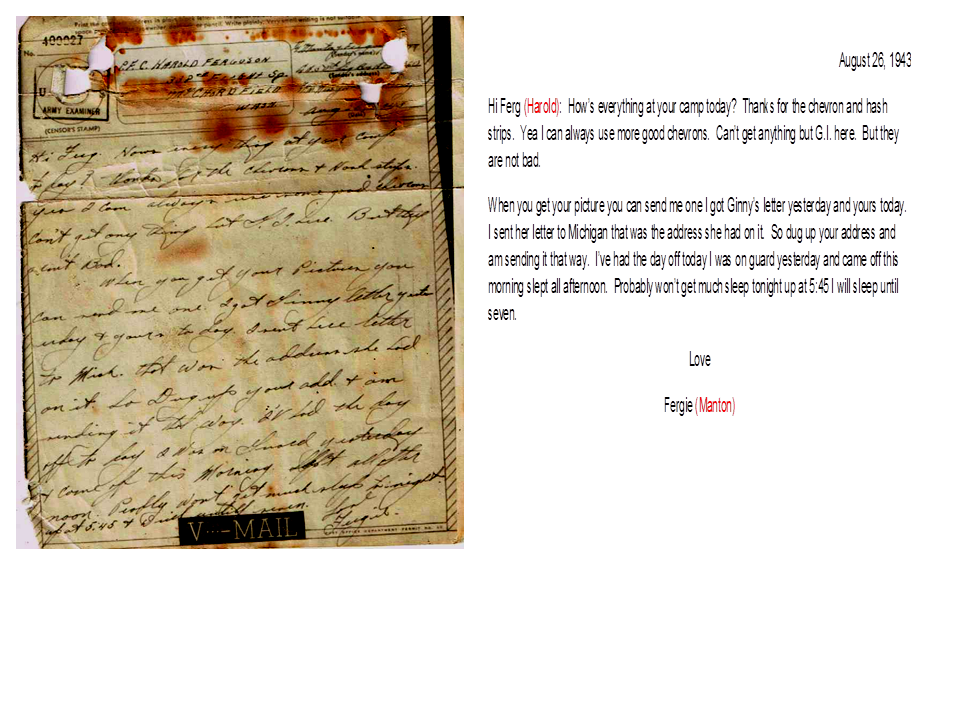 Print the
No. 400027
P.F.C. HAROLD FERGUSON
342nd FLIGHT Sp.
McCHORD FIELD
WASH
(Sender's name)
(Sender's address)
U S
ARMY EXAMINER
(CENSOR'S STAMP)
Hi Ferg. Hows every thing at your camp
to day? thanks for the chevrons & Hash strips.
yea I can always use more good chevrons
can't get any thing but G.I. here. But they
ain't bad.
When you get your Picture you
can send me one. I got Ginny letter yeste
erday & yours to day. I sent her letter
to Mich. that was the address she had
on it. So Dug up your add. & am
sending it this way. I've had the day
off to day I was on Guard yesterday
& come off this Morning slept all after
noon. Probly won't get much sleep tonight
up at 5:45 & I will until seven.
Fergie.
V···—MAIL
POST OFFICE DEPARTMENT PERMIT NO.
August 26, 1943
Hi Ferg (Harold): How's everything at your camp today? Thanks for the chevron and hash
strips. Yea I can always use more good chevrons. Can't get anything but G.I. here. But they
are not bad.
When you get your picture you can send me one I got Ginny's letter yesterday and yours today.
I sent her letter to Michigan that was the address she had on it. So dug up your address and
am sending it that way. I've had the day off today I was on guard yesterday and came off this
morning slept all afternoon. Probably won't get much sleep tonight up at 5:45 I will sleep until
seven.
Love
Fergie (Manton)